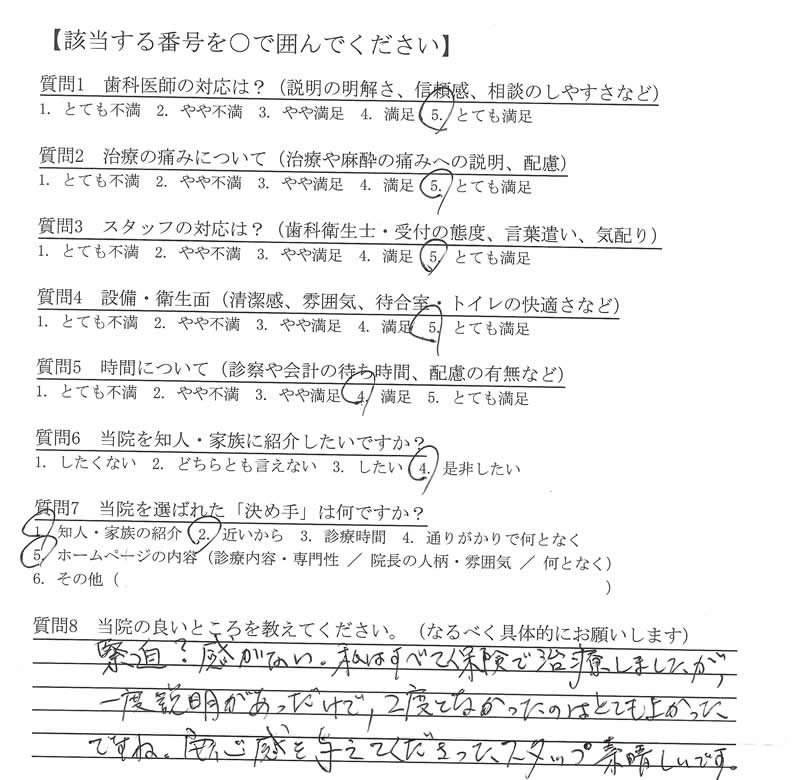 【該当する番号を○で囲んでください】
質問1 歯科医師の対応は？（説明の明解さ、信頼感、相談のしやすさなど）
1. とても不満 2. やや不満 3. やや満足 4. 満足 5. とても満足
質問2 治療の痛みについて（治療や麻酔の痛みへの説明、配慮）
1. とても不満 2. やや不満 3. やや満足 4. 満足 5. とても満足
質問3 スタッフの対応は？（歯科衛生士・受付の態度、言葉遣い、気配り）
1. とても不満 2. やや不満 3. やや満足 4. 満足 5. とても満足
質問4 設備・衛生面（清潔感、雰囲気、待合室・トイレの快適さなど）
1. とても不満 2. やや不満 3. やや満足 4. 満足 5. とても満足
質問5 時間について（診察や会計の待ち時間、配慮の有無など）
1. とても不満 2. やや不満 3. やや満足 4. 満足 5. とても満足
質問6 当院を知人・家族に紹介したいですか？
1. したくない 2. どちらとも言えない 3. したい 4. 是非したい
質問7 当院を選ばれた「決め手」は何ですか？
1. 知人・家族の紹介 2. 近いから 3. 診療時間 4. 通りがかりで何となく
5. ホームページの内容（診療内容・専門性 ／ 院長の人柄・雰囲気 ／ 何となく）
6. その他（ ）
質問8 当院の良いところを教えてください。（なるべく具体的にお願いします）
緊迫？感がない。私はすべて保険で治療しましたが、
一度説明があっただけで、2度となかったのはとても良かった
ですね。安心感を与えてくださったスタッフ素晴しいです。